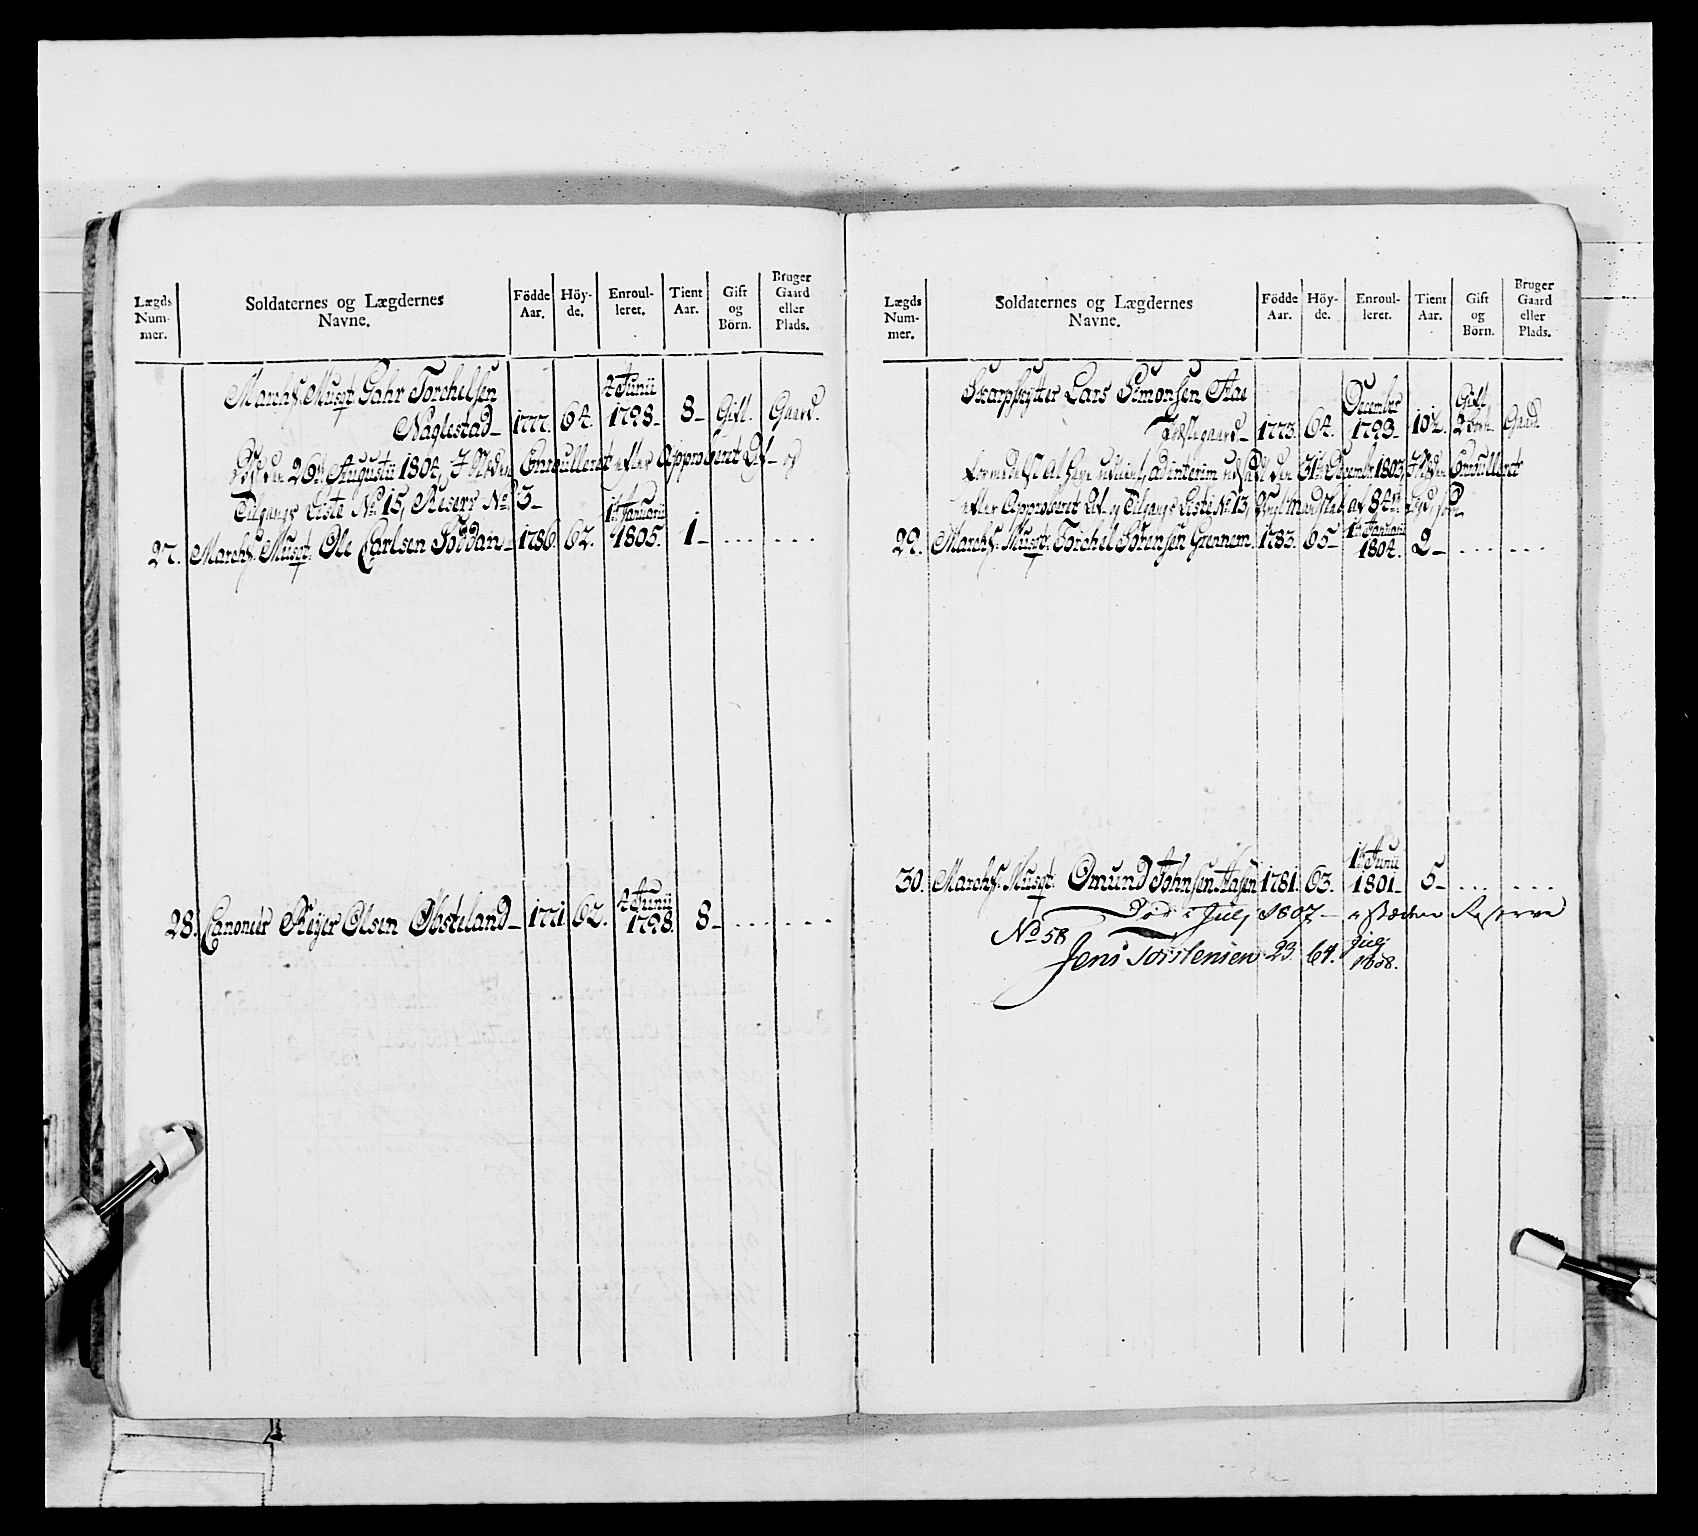 Lægds Num- mer. Soldaternes og Lægdernes Navne. Födde Aar. Höy- de. Enroul- leret. Tient Aar. Gift og Börn. Bruger Gaard eller Plads.
March: Musqt: Gahr Torchelsen
Naglestad 1777. 64. 4 Junii 1798 8 Gift. Gaard.
Död den 26de Augustii 1804, I Stæden Enroulleret efter Approberet Af- og
Tilgangs Liste No. 15, Reserv No. 3
27. March: Musqt: Ole Carlsen Töddan 1786. 62. 1te Januarii 1805. 1 ....
28. Canoneer Reyer Olsen Obsteland 1771. 62. 4 Junii 1798. 8 ....
Lægds Num- mer. Soldaternes og Lægdernes Navne. Födde Aar. Höy- de. Enroul- leret. Tient Aar. Gift og Börn. Bruger Gaard eller Plads.
Skarpskytter Lars Simonsen Aae
1773. 64. December 1793 10½ Gift 2 Börn. Gaard.
ad interim udsadt den 31te December 1803, I Stæden Enroulleret
efter Approberet Af- og Tilgangs Liste No. 13,
29. March: Musqt: Torchel Sörensen Grennem 1783. 65 1te Januarii 1804. 2 ....
30. March: Musqt: Omund Johnsen Aasen 1781. 63. 1te Junii 1801 5 ....
Död i July 1807 Reserve
No 58
Jens Torstensen 23. 64. July 1808.